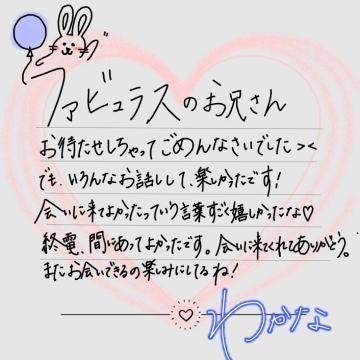 ファビュラスのお兄さん
お待たせしちゃってごめんなさいでした><
でも、いろんなお話しして、楽しかったです!
会いに来てよかったっていう言葉すごく嬉しかったな♡
終電、間にあってよかったです。会いに来てくれてありがとう。
またお会いできるの楽しみにしてるね!
わかな